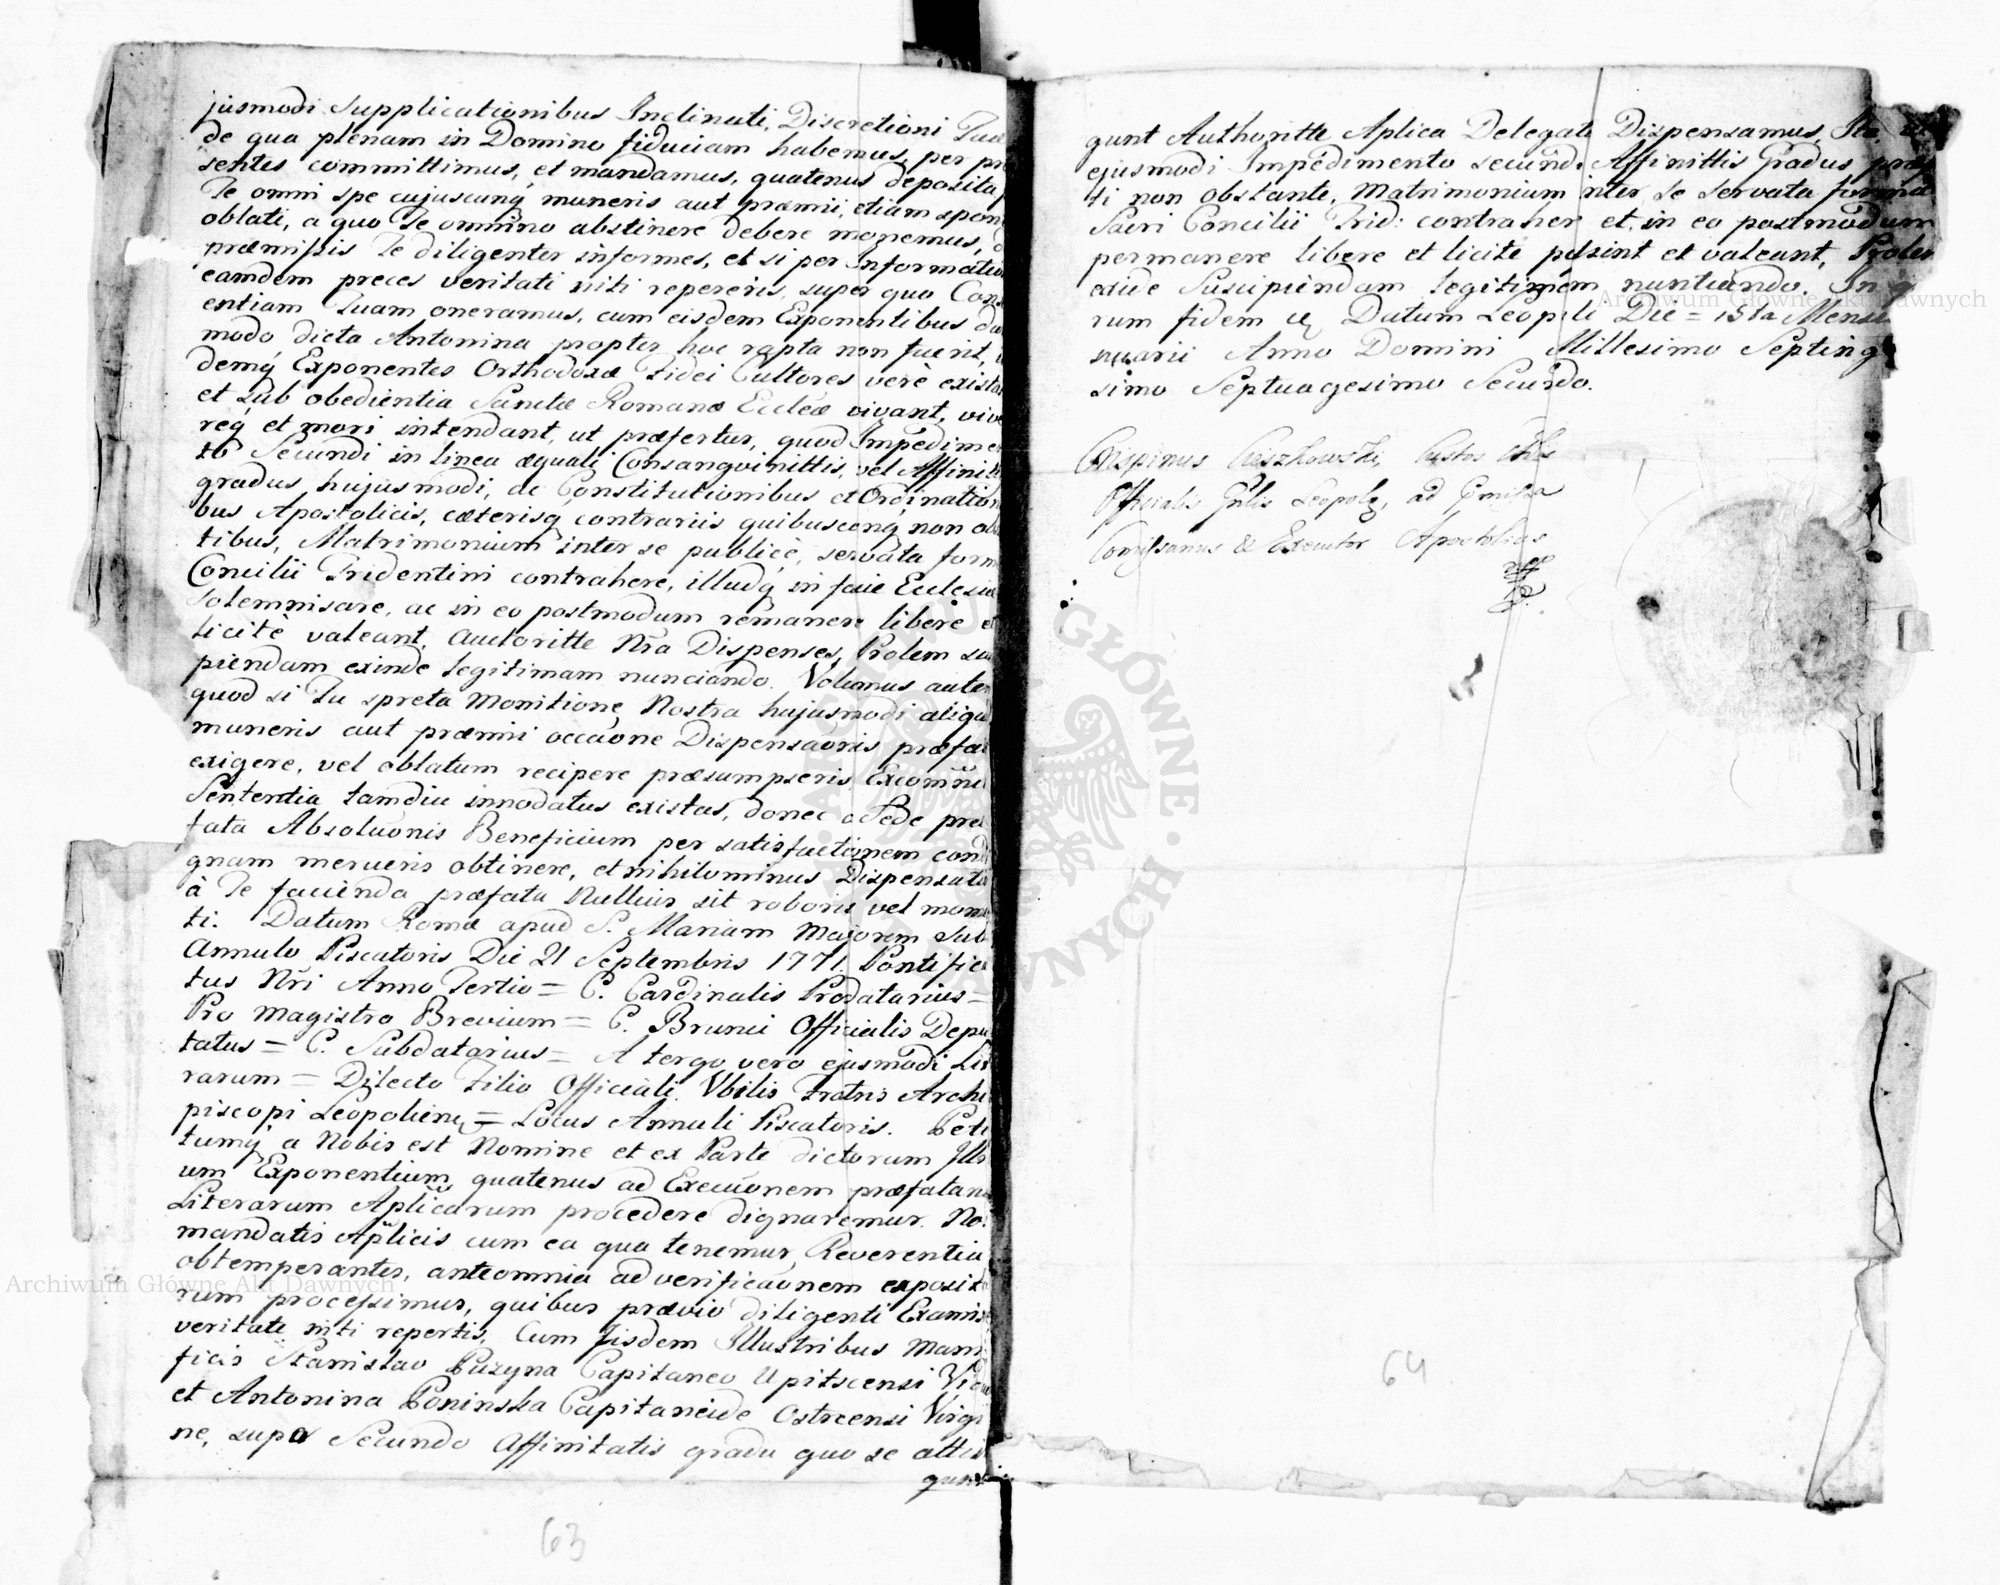 jusmodi Supplicationibus Inclinati, Discretioni Tuæ
de qua plenam in Domino fiduciam habemus, per præ
sentes committimus, et mandamus, quatenus deposita p
Te omni spe cujuscunq muneris aut præmii, etiam spon
oblati, a quo Te omnino abstinere debere monemus, d
præmissis Te diligenter informes, et si per Informatio
eamdem preces veritati niti repereris, super quo Cons
entiam Tuam oneramus, cum eisdem Exponentibus du
modo dicta Antonina propter hoc rapta non fuerit,
demq Exponentes Orthodoxæ Fidei Cultores verè exista
et sub obedientia Sanctæ Romanæ Ecclæ vivant, vive
req et mori intendant, ut præfertur, quod Impedimen
to Secundi in linea æquali Consangvinittis, vel Affinitt
gradus hujusmodi, ac Constitutionibus et Ordination
bus Apostolicis, cæterisq contrariis quibuscunq non obs
tibus, Matrimonium inter se publicè, servata form
Concilii Tridentini contrahere, illudq in facie Ecclesiæ
Solemnisare, ac in eo postmodum remanere liberè et
licitè valeant, Autoritte Nrã Dispenses, Prolem sus
piendam exinde legitimam nunciando. Volumus autem
quod si Tu spreta Monitione Nostra hujusmodi aliqu
muneris aut præmii occãone Dispensãonis præfat
exigere, vel oblatum recipere præsumpseris Excomñi
Sententia tamdiu innodatus existas, donec a Sede præ
fata Absoluõnis Beneficium per satisfactionem cond
gnam merueris obtinere, et nihilominus Dispensati
à Te facienda præfata Nullius sit roboris vel mome
ti. Datum Romæ apud S. Mariam Majorem Sub
Annulo Piscatoris Die 21 Septembris 1771. Pontifica
tus Nri Anno Tertio = C. Cardinalis Prodatarius =
Pro Magistro Brevium = C. Brunci Officialis Depu
tatus = C. Subdatarius = A tergo vero ejusmodi Lit
rarum = Dilecto Filio Officiali Vbilis Fratris Archi
piscopi Leopolien = Locus Annuli Piscatoris. Peti
tumq a Nobis est Nomine et ex Parte dictorum Illr
um Exponentium, quatenus ad Execuõnem præfataru
Literarum Aplicarum procedere dignaremur. Nos
mandatis Aplicis cum ea qua tenemur Reverentia
obtemperantes, ante omnia ad verificaõnem exposito
rum processimus, quibus prævio diligenti Examine
veritate niti repertis, Cum Iisdem Illustribus Magni
ficis Stanislao Puzyna Capitaneo Upitscensi Vidu
et Antonina Poninska Capitaneide Ostrcensi Virgi
ne, supa Secundo Affinitatis gradu quo se attin
gunt
63
gunt Authoritte Aplica Delegata Dispensamus, Ita ut
ejusmodi Impedimento secundi Affinittis Gradus præ
ti non obstante, Matrimonium inter se servata forma
Sacri Concilii Trid: contrahere et in eo postmodum
permanere libere et licite possint et valeant, Prolem
exinde Suscipiendam legitimam nuntiando. In q
rum fidem Datum Leopoli Die = 15ta Mens
nuarii Anno Domini Millesimo Septinge
simo Septuagesimo Secundo.
Crispinus Cieszkowski, Custos
Officialis Gnlis Leopol, ad
Comissarius & Executor Apostolicus
64
Archiwum Główne Akt Dawnych
Archiwum Główne Akt Dawnych